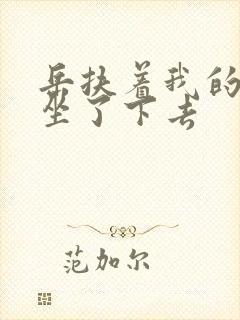 岳扶着我的
坐了下去
范加尔